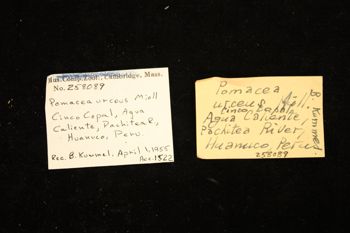 Mus. Comp. Zool., Cambridge, Mass.
No. 258089
Pomacea urceus Müll
Cinco Copal, Agua
Caliente, Pachitea R,
Huanuco, Peru
Rec. B. Kummel. April 1, 1955
Acc. 1522
Pomacea
urceus, Müll.
Cinco Copal
Agua Caliente,
Pachitea River,
Huanuco, Peru
258089
B. Kummel.